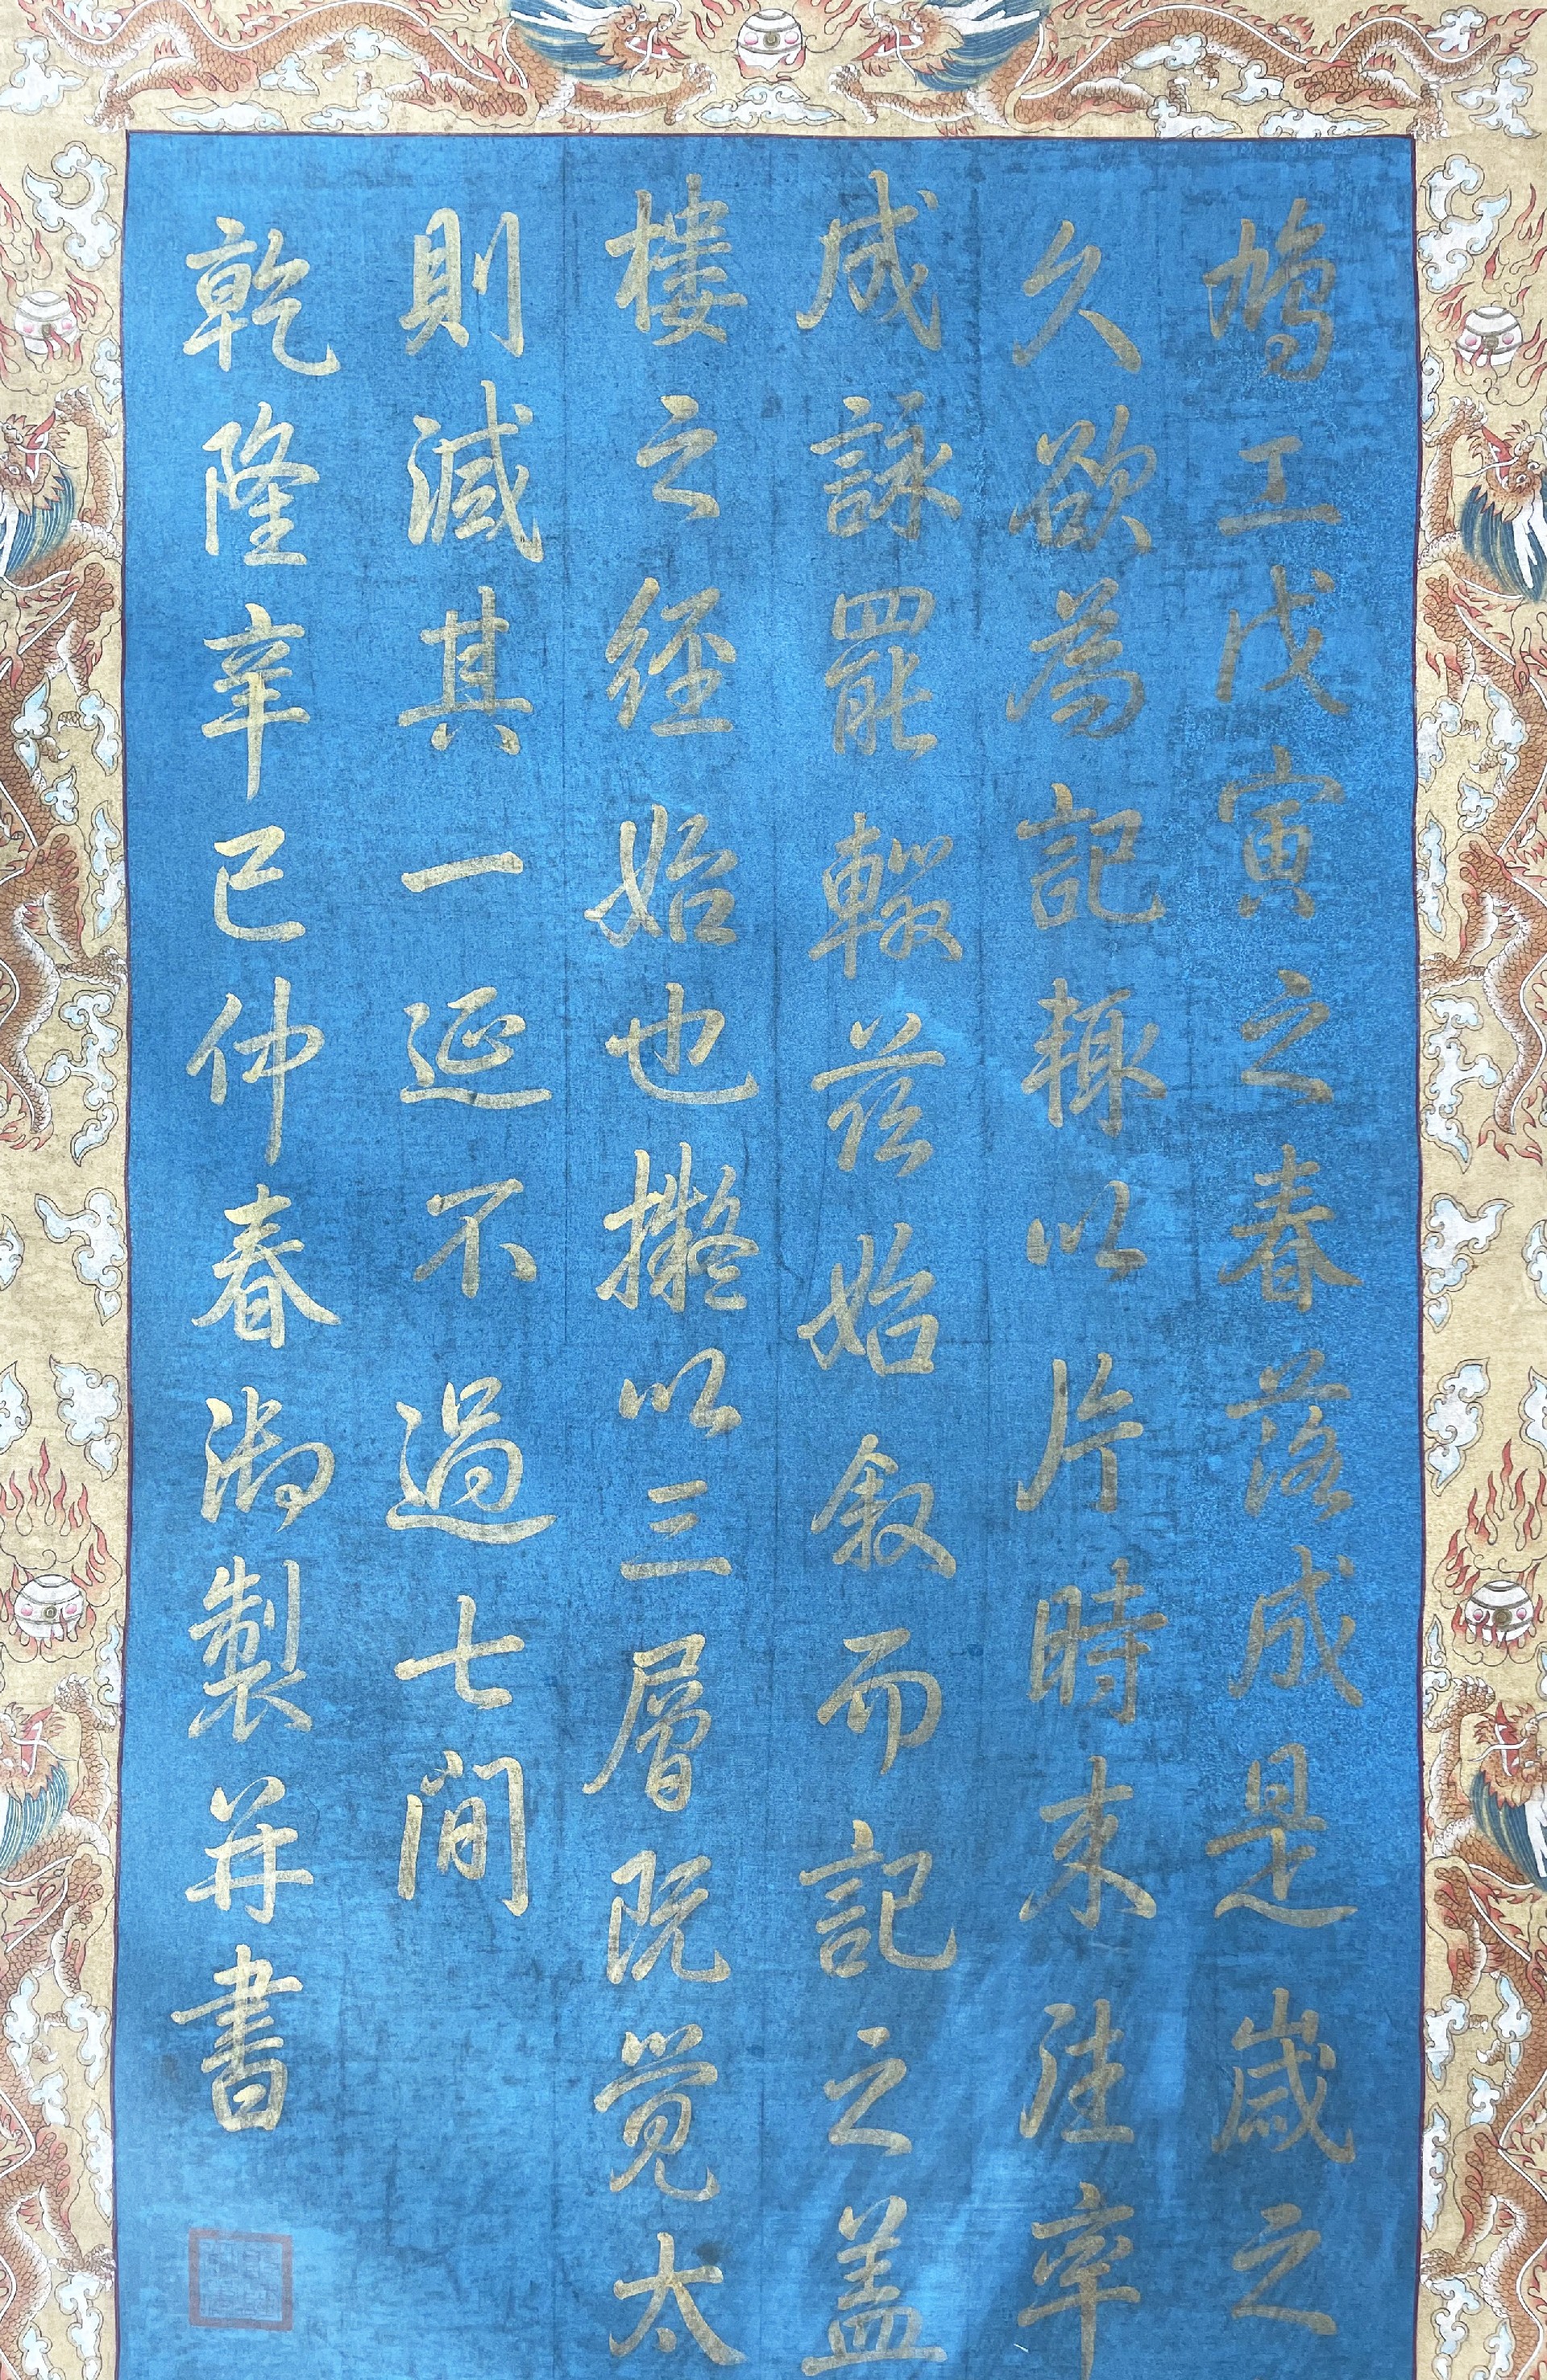 鳩工戊寅之春落成是歲之
久欲為記輒以片時來往率
成詠罷輟茲始敘而記之蓋
樓之經始也擬以三層既覺太
則減其一延不過七間
乾隆辛巳仲春御製并書